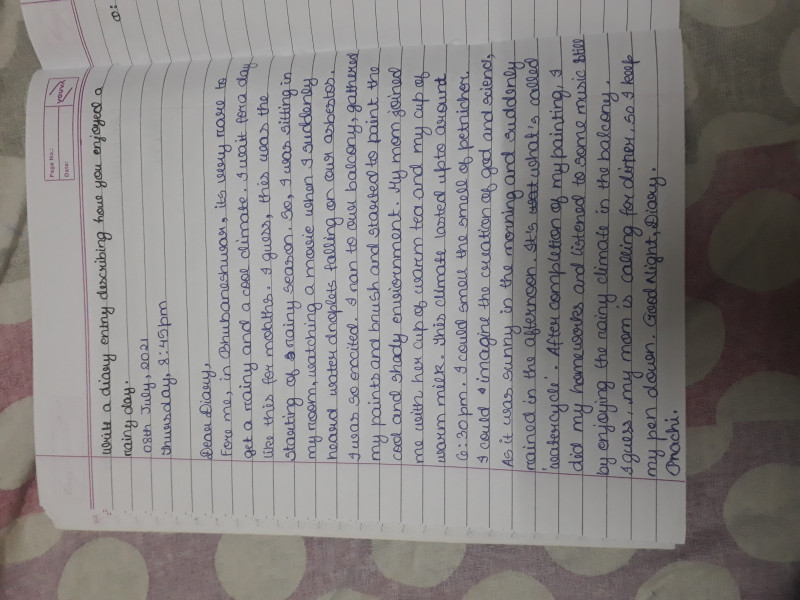 Page No.:
Date:
YOUVA
Q:
Write a diary entry describing how you enjoyed a
rainy day.
08th July, 2021
Thursday, 8:45pm
Dear Diary,
For me, in Bhubaneshwar, its very rare to
get a rainy and a cool climate. I wait for a day
like this for months. I guess, this was the
starting of rainy season. So, I was sitting in
my room, watching a movie when I suddenly
heard water droplets falling on our asbestos.
I was so excited. I ran to our balcony, gathered
my paints and brush and started to paint the
cool and shady enviornment. My mom joined
me with her cup of warm tea and my cup of
warm milk. This climate lasted upto around
6:30pm. I could smell the smell of petrichor.
I could imagine the creation of god and sciend,
As it was sunny in the morning and suddenly
rained in the afternoon. It's what's called
'watercycle'. After completion of my painting, I
did my homeworks and listened to some music still
by enjoying the rainy climate in the balcony.
I guess, my mom is calling for dinner, so I keep
my pen down. Good Night, Diary.
Prachi.